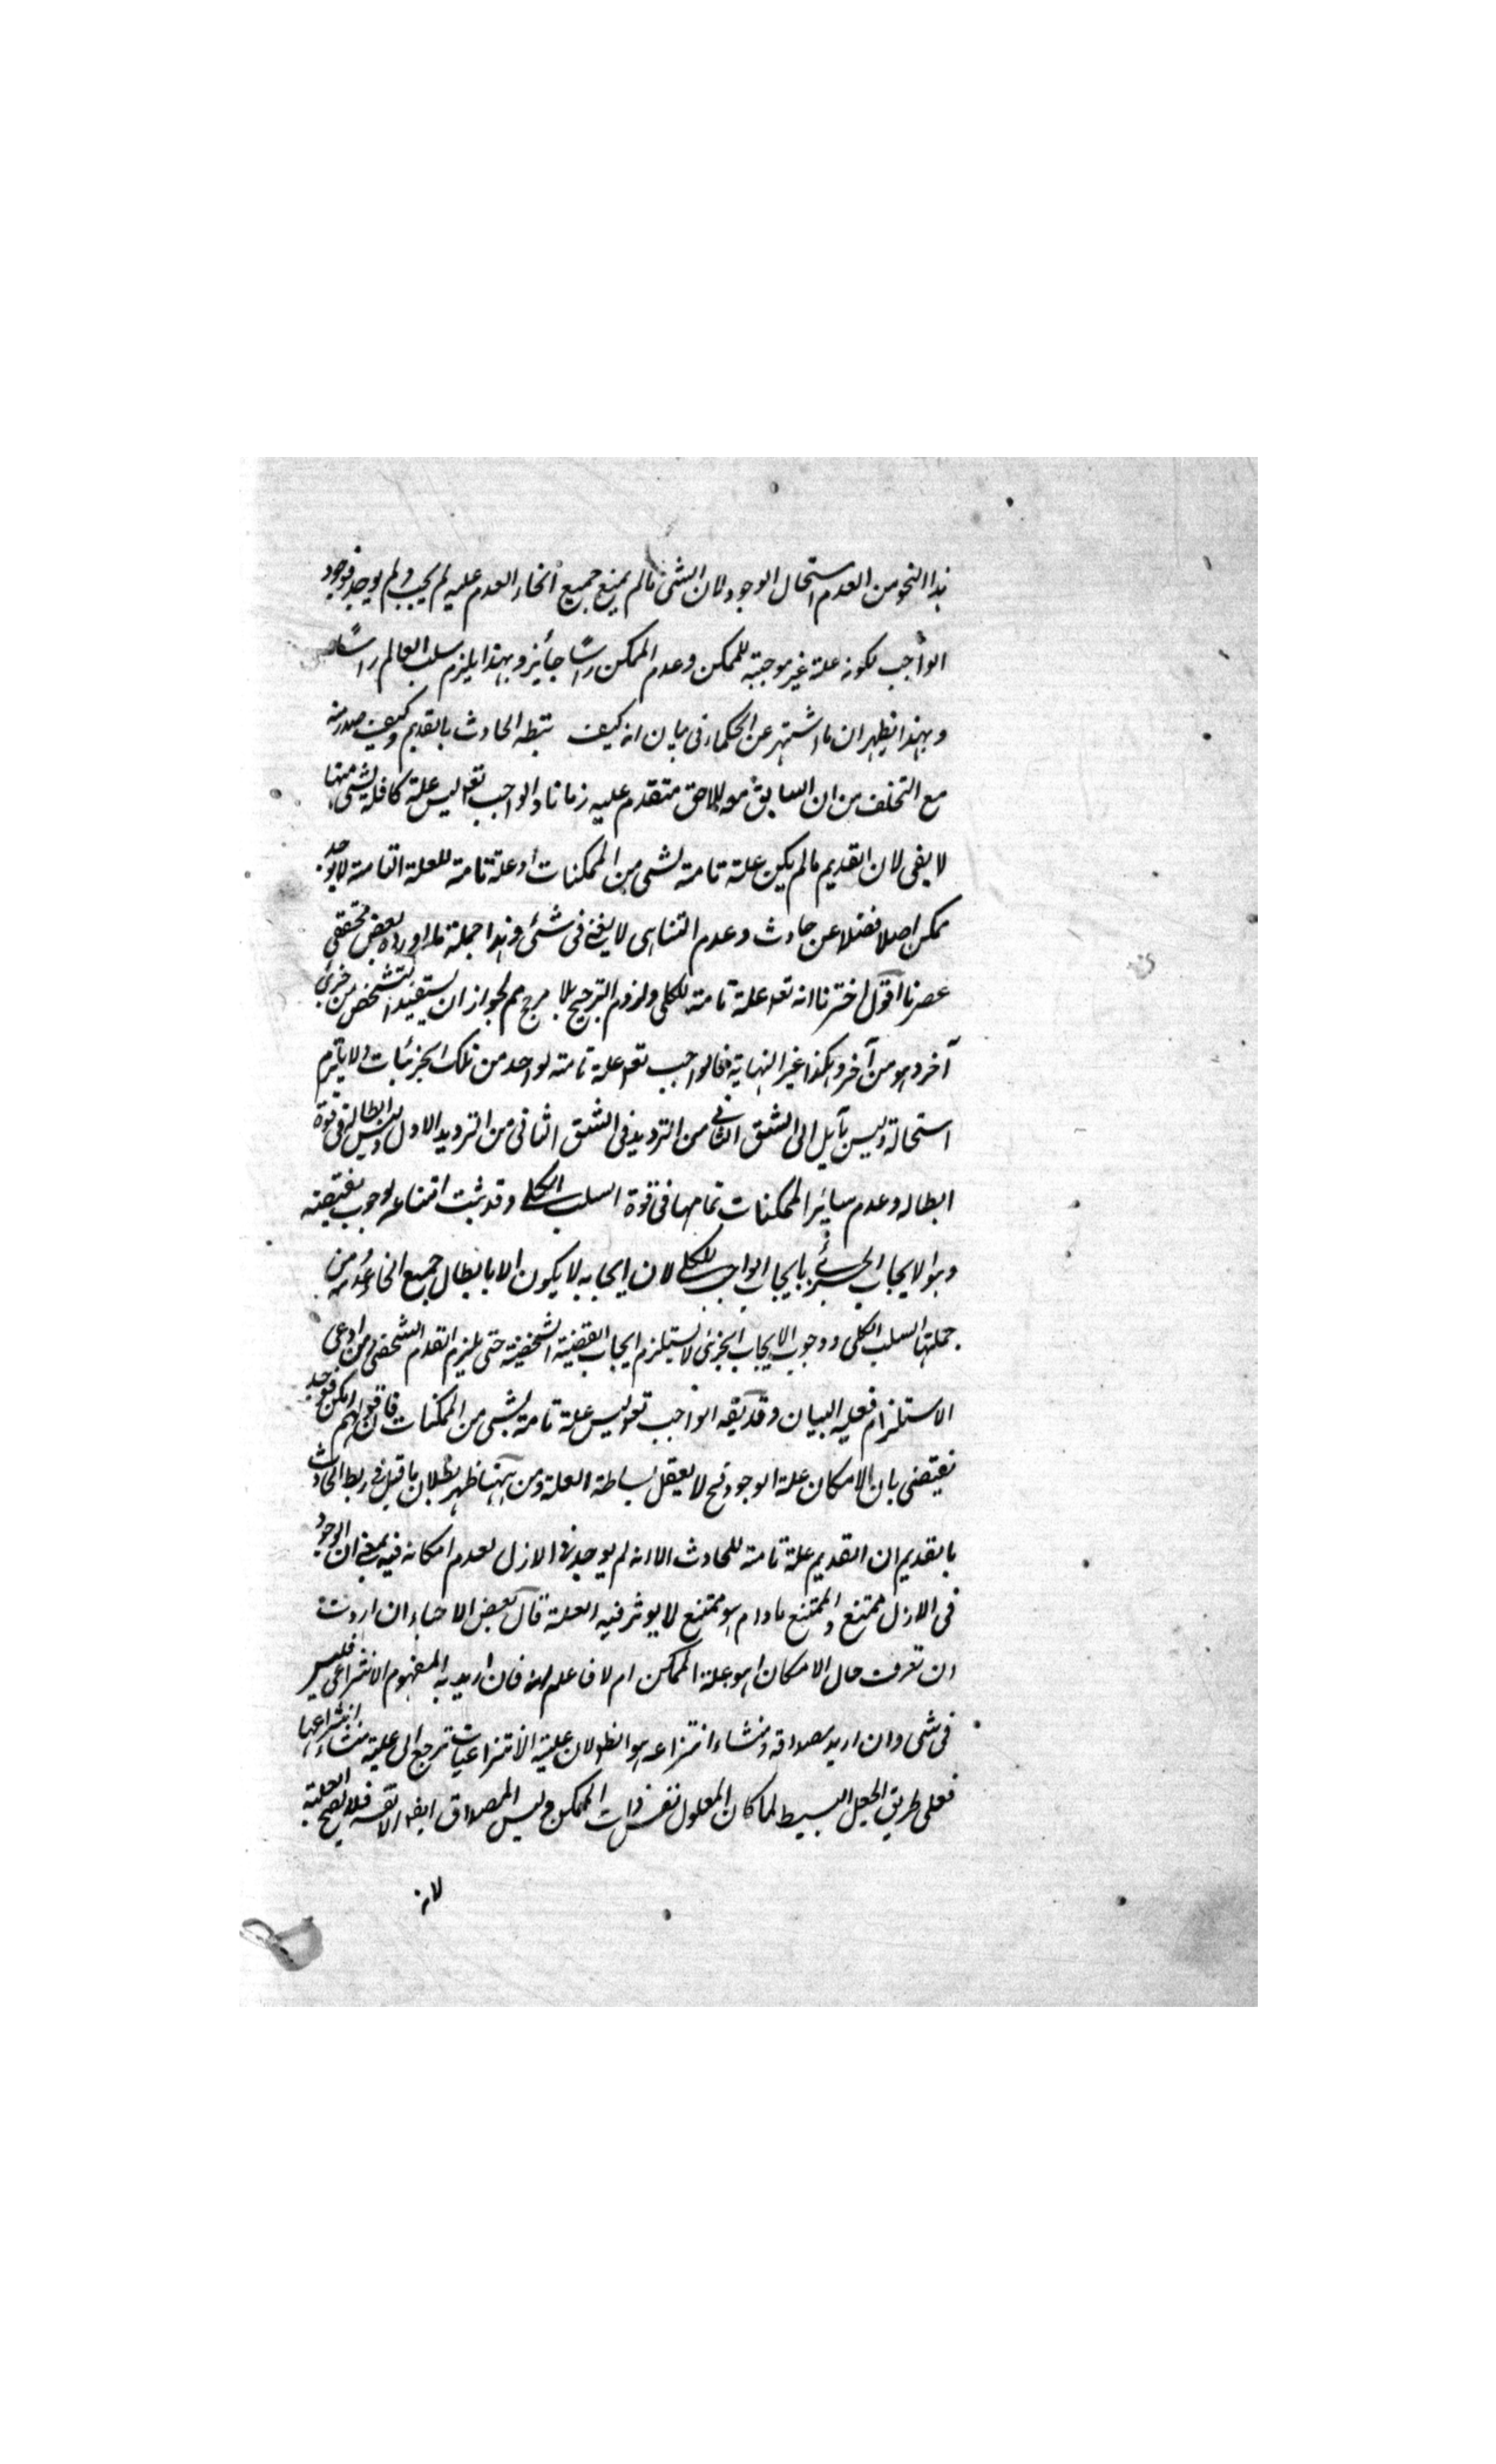 هذا النحو من العدم استحال الوجود لان الشئ ما لم يمتنع جميع انحاء العدم عليه لم يجب و لم يوجد فوجود
الواجب لكونه علة غير موجبة للممكن وعدم الممكن راسًا جائز وبهذا يلزم سلب العالم راسًا
وبهذا يظهر ان ما اشتهر عن الحكماء فى بيان انه كيف يتبطه الحادث بالقديم وكيف صدر منه
مع التخلف من ان السابق معد للاحق متقدم عليه زمانا والواجب تعه ليس علة كافلة لشئ منها
لا يفى لان القديم ما لم يكن علة تامة لشئ من الممكنات او علة تامة للعلة التامة لا يوجد
ممكن اصلا فضلا عن حادث وعدم التناهى لا يغنى فى شئ وهذا جملة ما اورده بعض محققى
عصرنا اقول اخترنا انه تعه علة تامة للكلى ولزوم الترجيح بلا مرجح مم لجواز ان يستفيد التشخص من جزئى
آخر وهو من آخر وهكذا غير النهاية فالواجب تعه علة تامة لواحد من تلك الجزئيات ولا يلزم
استحالة وليس بآيل الى الشق الثانى من الترديد فى الشق الثانى من الترديد الاول وليس ابطاله فى قوة
ابطاله وعدم سائر الممكنات تمامها فى قوة السلب الكلى وقد ثبت امتناعه لوجوب نقيضه
وهو الايجاب الجزئى بايجاب الواجب للكلى لان ايجابه لا يكون الا بابطال جميع انحاء عدمه من
جملتها السلب الكلى ووجوب الايجاب الجزئى لا يستلزم ايجاب القضية الشخصية حتى يلزم القدم الشخصى من ادعى
الاستلزام فعليه البيان وقد يقه الواجب تعه ليس علة تامة لشئ من الممكنات فان قولهم امكن فوجد
يقتضى بان الامكان علة الوجود فح لا يعقل بساطة العلة ومن ههنا ظهر بطلان ما قيل فى ربط الحادث
بالقديم ان القديم علة تامة للحادث الا انه لم يوجد فى الازل لعدم امكانه فيه بمعنى ان الوجود
فى الازل ممتنع والممتنع ما دام هو ممتنع لا يوثر فيه العلة قال بعض الاحباء ان اردت
ان تعرف حال الامكان اهو علة الممكن ام لا فاعلم انه فان اريد به المفهوم الانتزاعى فليس
فى شئ وان اريد مصداقه ومنشاء انتزاعه هو انظه لان علية الانتزاعيات ترجع الى علية منشاء انتزاعها
فعلى طريق الجعل البسيط لما كان المعلول نفس ذات الممكن وليس المصداق ايضا الا نفسه فلا يصح العلية
لانه